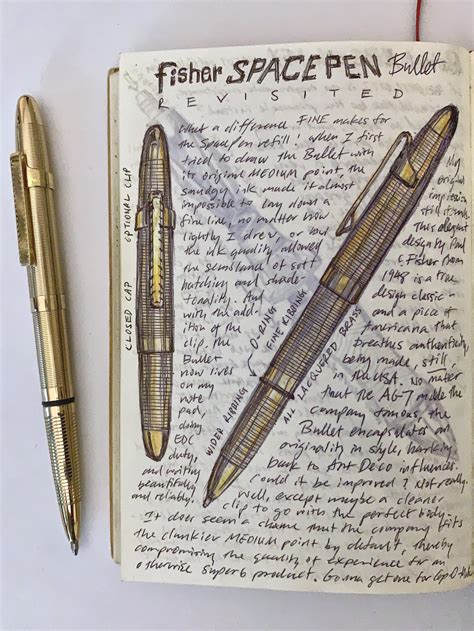 fisher SPACEPEN Bullet
REVISITED
What a difference FINE makes for
the Spacepen refill! When I first
tried to draw the Bullet with
its original MEDIUM point, the
smudgy ink made it almost
impossible to lay down a
fine line, no matter how
lightly I drew,
the ink quality allowed
the semblance of soft
hatching and shade-
tonality. And
with the add-
ition of the
clip, the
Bullet
now lives
on my
note
pad,
doing
EDC
duty,
and writing
beautifully
and reliably.
OPTIONAL CLIP
CLOSED CAP
WIDER RIBBING
O-RING
FINE RIBBING
ALL LACQUERED BRASS
My
original
impression
still
This elegant
design by Paul
C. Fisher from
1948 is a true
design classic -
and a piece of
americana that
breathes authenticity,
being made still
in the USA. No matter
that the AG-7 made the
company famous, the
Bullet encapsulates an
originality in style, harking
back to Art Deco influences.
Could it be improved? Not really.
Well, except maybe a cleaner
clip to go with the perfect body.
It does seem a shame that the company fits
the clunkier MEDIUM point by default, thereby
compromising the quality of experience for an
otherwise superb product. Gonna get one for